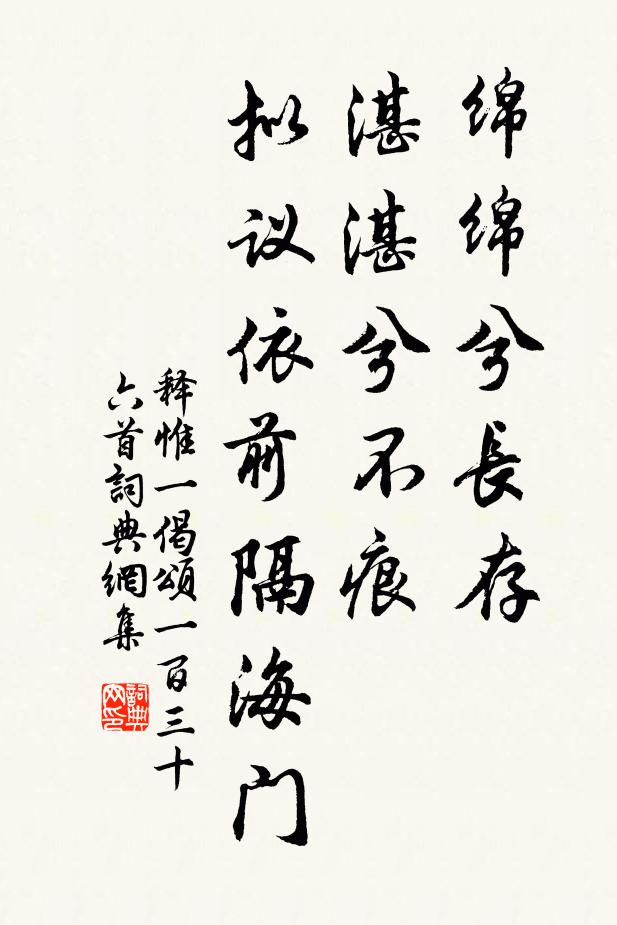 绵绵兮長存
湛湛兮不痕
拟议依前隔海门
释惟一偈頌一百三十
六首詞典網集
詞典网印